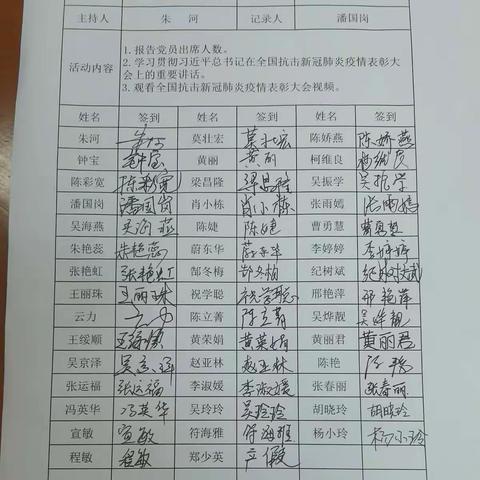 主持人 朱 河 记录人 潘国岗
活动内容
1. 报告党员出席人数。
2. 学习贯彻习近平总书记在全国抗击新冠肺炎疫情表彰大
会上的重要讲话。
3. 观看全国抗击新冠肺炎疫情表彰大会视频。
姓名 签到 姓名 签到 姓名 签到
朱河 朱河 莫壮宏 莫壮宏 陈娇燕 陈娇燕
钟宝 钟宝 黄丽 黄丽 柯维良 柯维良
陈彩宽 陈彩宽 梁昌隆 梁昌隆 吴振学 吴振学
潘国岗 潘国岗 肖小栋 肖小栋 张雨嫣 张雨嫣
吴海燕 吴海燕 陈婕 陈婕 曹勇慧 曹勇慧
朱艳蕊 朱艳蕊 蔚东华 蔚东华 李婷婷 李婷婷
张艳虹 张艳虹 郜冬梅 郜冬梅 纪树斌 纪树斌
王丽珠 王丽珠 祝学聪 祝学聪 邢艳萍 邢艳萍
云力 云力 陈立菁 陈立菁 吴烨靓 吴烨靓
王绥顺 黄荣娟 黄荣娟 黄丽君 黄丽君
吴京泽 吴京泽 赵亚林 赵亚林 陈艳 陈艳
张运福 张运福 李淑媛 李淑媛 张春丽 张春丽
冯英华 冯英华 吴玲玲 吴玲玲 胡晓玲 胡晓玲
宣敏 宣敏 符海雅 符海雅 杨小玲 杨小玲
程敏 程敏 郑少英 产假